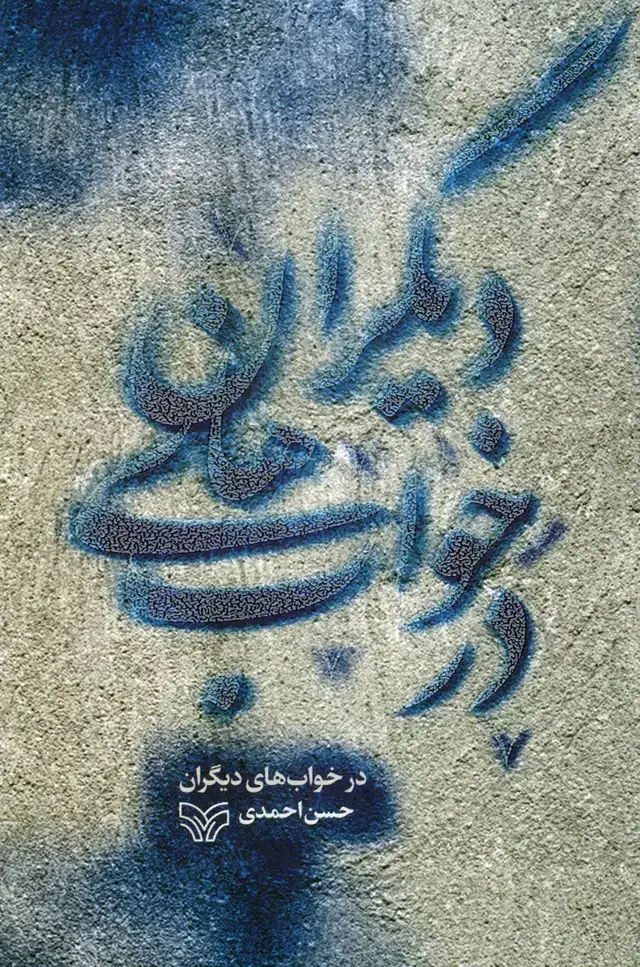 دیگران
در خواب‌های
در خواب‌های دیگران
حسن احمدی